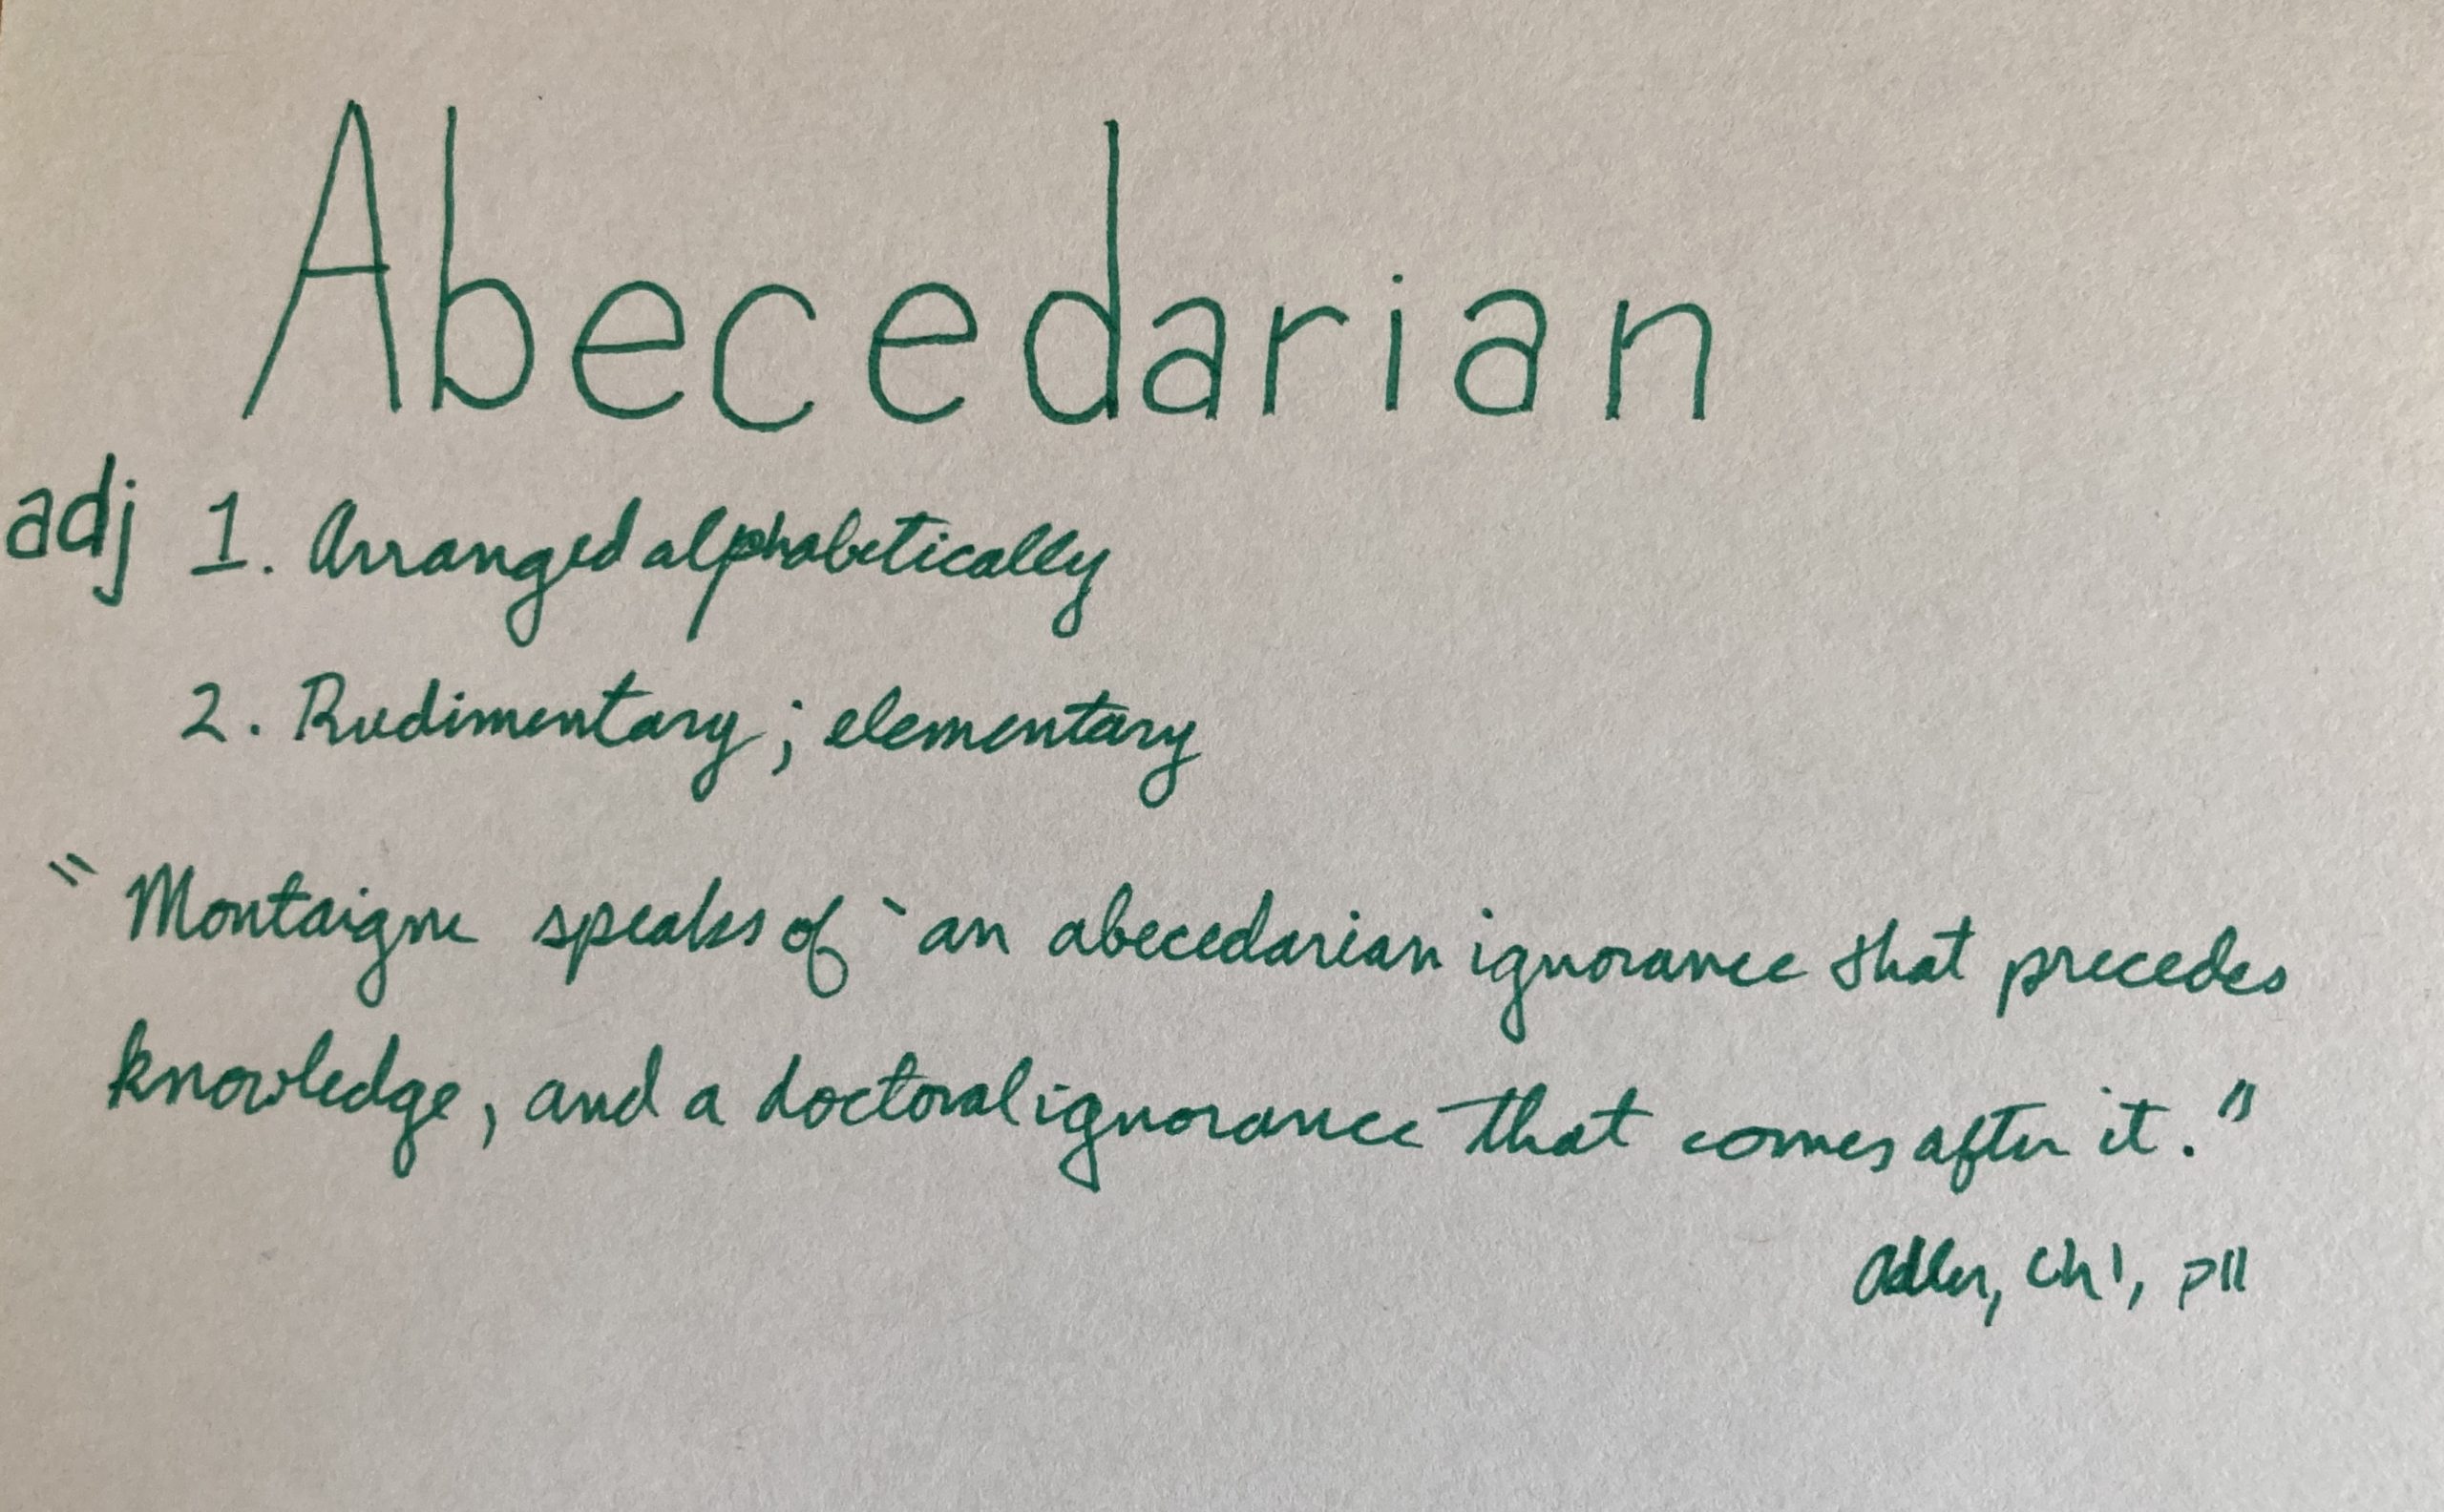 Abecedarian
adj 1. Arranged alphabetically
2. Rudimentary; elementary
" Montaigne speaks of ` an abecedarian ignorance that precedes
knowledge, and a doctoral ignorance that comes after it."
Adler, Ch 1, p11